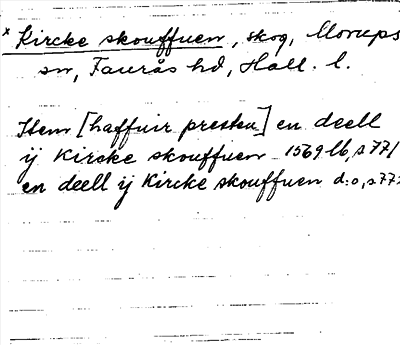 x Kircke skouffuen, skog, Morups
sn, Faurås hd, Hall. l.
Item [haffuir presten] en deell
ij Kircke skouffuen 1569 lb, s 77/
en deell ij Kircke skouffuen d:o, s 77